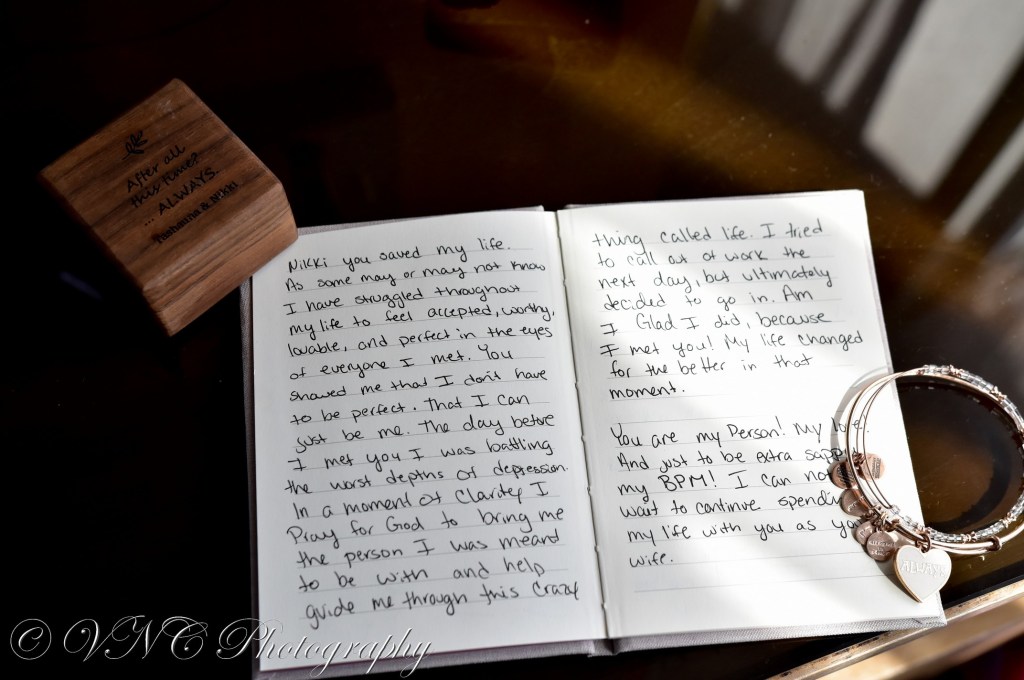 After all
this time?
... ALWAYS.
& Nikki
Nikki you saved my life.
As some may or may not know
I have struggled throughout
my life to feel accepted, worthy,
lovable, and perfect in the eyes
of everyone I met. You
showed me that I don't have
to be perfect. That I can
just be me. The day before
I met you I was battling
the worst depths of depression.
In a moment of Clarity I
Pray for God to bring me
the person I was meant
to be with and help
guide me through this Crazy
thing called life. I tried
to call out of work the
next day, but ultimately
decided to go in. Am
I Glad I did, because
I met you! My life changed
for the better in that
moment.
You are my Person! My
And just to be extra
my BPM! I can
wait to continue
my life with you as
wife.
ALWAYS
© VNC Photography